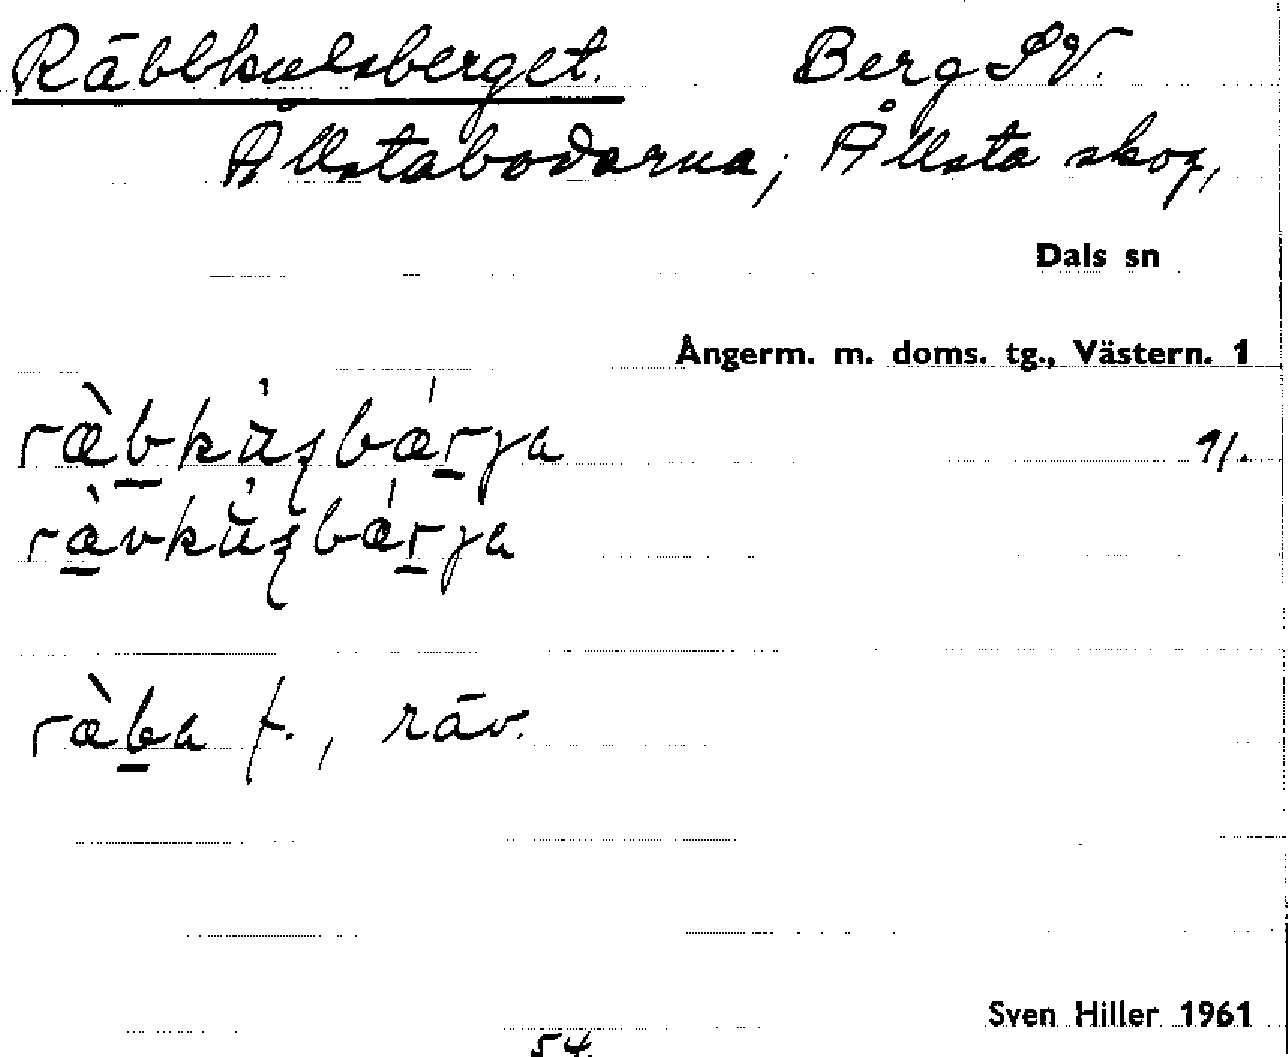 Räbbkulsberget. Berg SV.
Ållstabodarna, Ållsta skog,
Dals sn
Ångerm. m. doms. tg., Västern. 1
1/.
ræ̀ba f., räv.
Sven Hiller 1961
54.